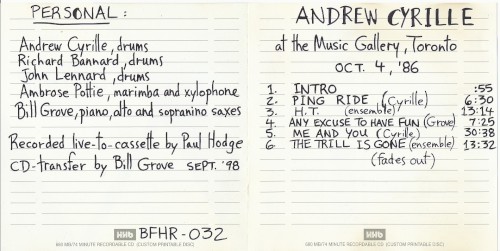 PERSONAL :
Andrew Cyrille, drums
Richard Bannard, drums
John Lennard, drums
Ambrose Pottie, marimba and xylophone
Bill Grove, piano, alto and sopranino saxes
Recorded live-to-cassette by Paul Hodge
CD-transfer by Bill Grove SEPT. '98
HHb BFHR-032
650 MB/74 MINUTE RECORDABLE CD (CUSTOM PRINTABLE DISC)
ANDREW CYRILLE
at the Music Gallery, Toronto
OCT. 4, '86
1. INTRO :55
2. PING RIDE (Cyrille) 6:30
3. H.T. (ensemble) 13:14
4. ANY EXCUSE TO HAVE FUN (Grove) 7:25
5. ME AND YOU (Cyrille) 30:38
6. THE TRILL IS GONE (ensemble) 13:32
(fades out)
HHb
650 MB/74 MINUTE RECORDABLE CD (CUSTOM PRINTABLE DISC)